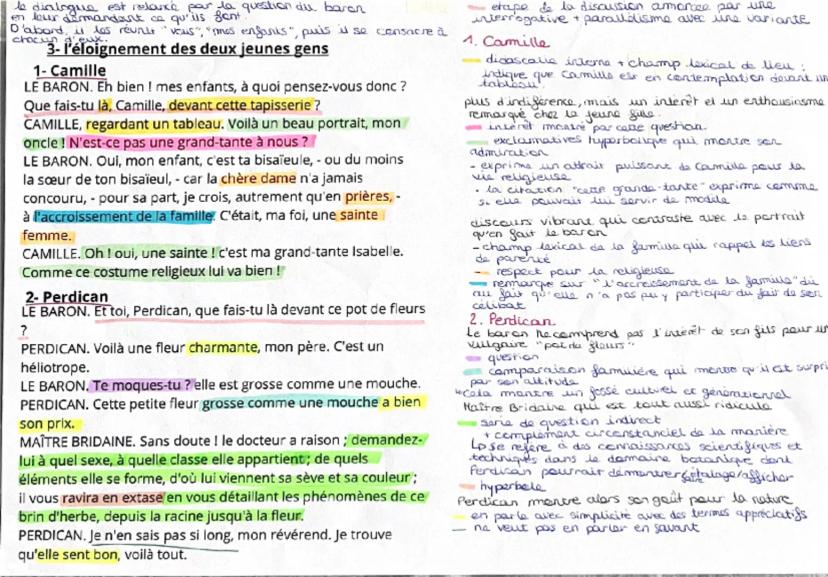 le dialogue est relancé par la question du baron
en leur demandant ce qu'ils font.
D'abord, il les réunit "vous", "mes enfants", puis il se consacre à
chacun d'eux.
3- l'éloignement des deux jeunes gens
1- Camille
LE BARON. Eh bien ! mes enfants, à quoi pensez-vous donc ?
Que fais-tu là, Camille, devant cette tapisserie ?
CAMILLE, regardant un tableau. Voilà un beau portrait, mon
oncle ! N'est-ce pas une grand-tante à nous ?
LE BARON. Oui, mon enfant, c'est ta bisaïeule, - ou du moins
la sœur de ton bisaïeul, - car la chère dame n'a jamais
concouru, - pour sa part, je crois, autrement qu'en prières, -
à l'accroissement de la famille. C'était, ma foi, une sainte
femme.
CAMILLE. Oh ! oui, une sainte ! c'est ma grand-tante Isabelle.
Comme ce costume religieux lui va bien !
2- Perdican
LE BARON. Et toi, Perdican, que fais-tu là devant ce pot de fleurs
?
PERDICAN. Voilà une fleur charmante, mon père. C'est un
héliotrope.
LE BARON. Te moques-tu ? elle est grosse comme une mouche.
PERDICAN. Cette petite fleur grosse comme une mouche a bien
son prix.
MAÎTRE BRIDAINE. Sans doute ! le docteur a raison ; demandez-
lui à quel sexe, à quelle classe elle appartient ; de quels
éléments elle se forme, d'où lui viennent sa sève et sa couleur ;
il vous ravira en extase en vous détaillant les phénomènes de ce
brin d'herbe, depuis la racine jusqu'à la fleur.
PERDICAN. Je n'en sais pas si long, mon révérend. Je trouve
qu'elle sent bon, voilà tout.
étape de la discussion amorcée par une
interrogative + parallélisme avec une variante
1. Camille
didascalie interne + champ lexical de lieu :
indique que Camille est en contemplation devant un
tableau.
plus d'indifférence, mais un intérêt et un enthousiasme
remarqué chez la jeune fille.
intérêt montré par cette question.
exclamatives hyperbolique qui montre son
admiration
- exprime un attrait puissant de Camille pour la
vie religieuse
- la citation "cette grande-tante" exprime comme
si elle pouvait lui servir de modèle
discours vibrant qui contraste avec le portrait
qu'en fait le baron
- champ lexical de la famille qui rappel les liens
de parenté
- respect pour la religieuse
remarque sur "l'accroissement de la famille" dû
au fait qu'elle n'a pas pu y participer du fait de son
célibat
2. Perdican
Le baron ne comprend pas l'intérêt de son fils pour un
vulgaire "pot de fleurs"
question
comparaison familière qui montre qu'il est surpri
par son attitude
↳ Cela montre un fossé culturel et générationnel
Maître Bridaine qui est tout aussi ridicule
série de question indirect
+ complément circonstanciel de la manière
Lp se réfère à des connaissances scientifiques et
techniques dans le domaine botanique dont
Perdican pourrait démontrer/étalage/afficher
hyperbole
Perdican montre alors son goût pour la nature
en parle avec simplicité avec des termes appréciatifs
ne veut pas en parler en savant